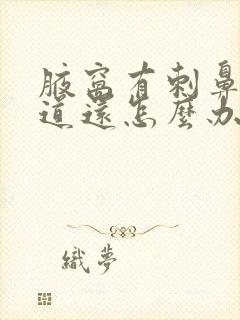 腋窩有刺鼻
道還怎麼办
織夢